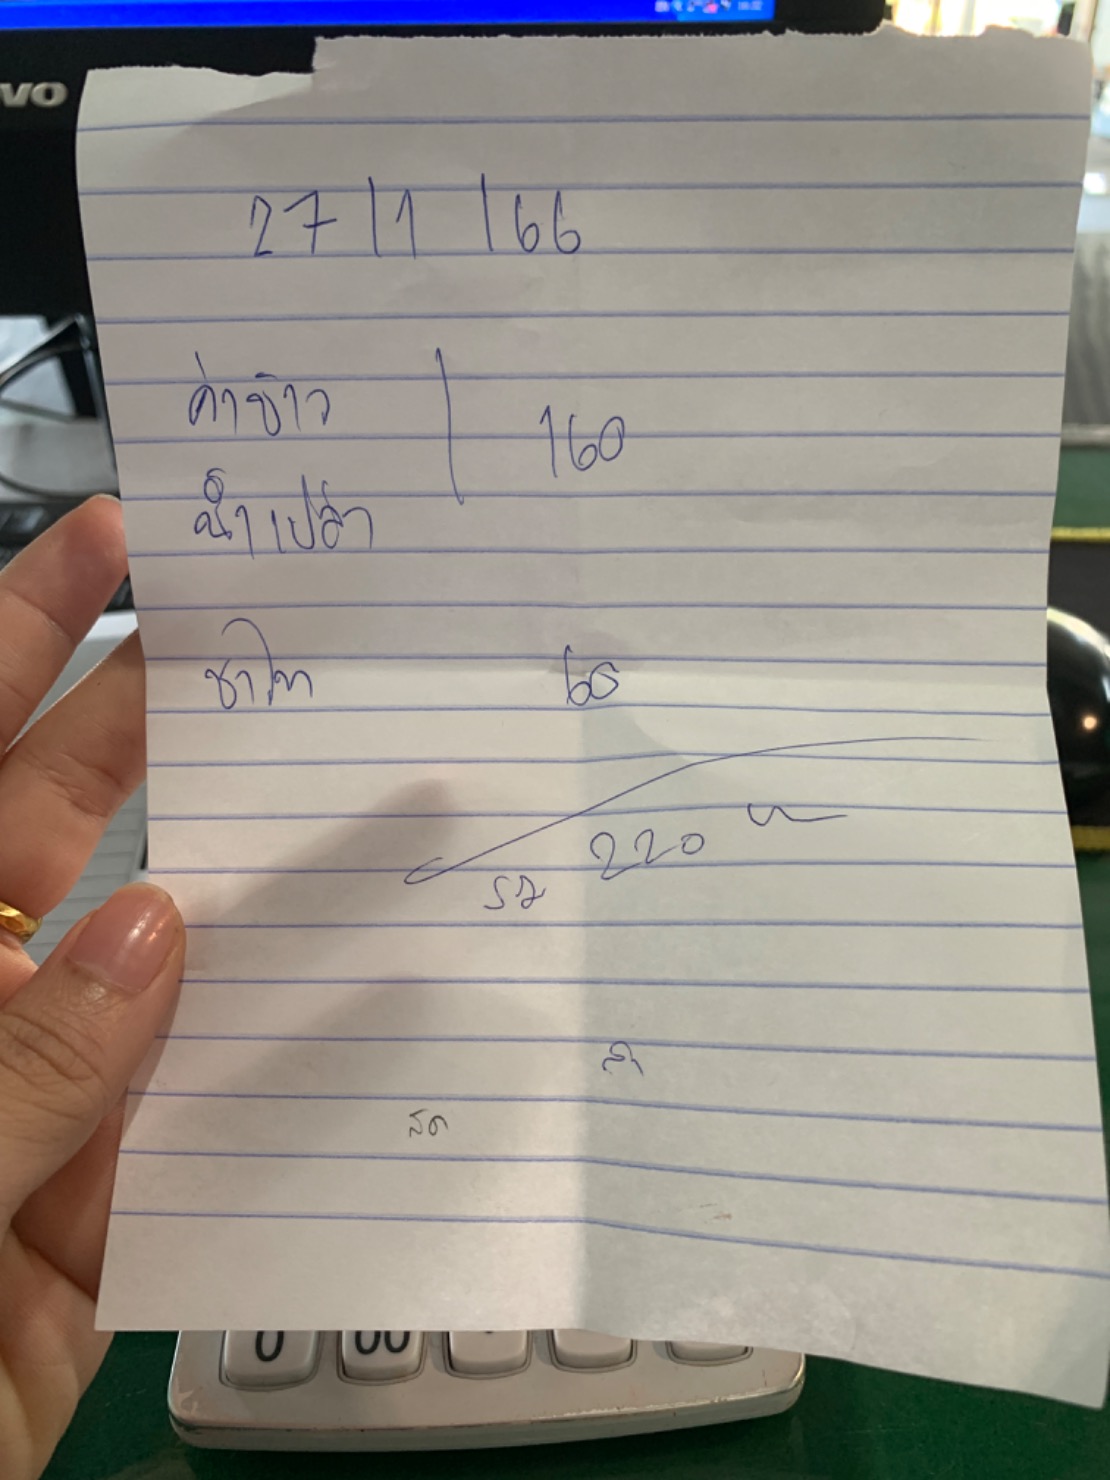 vo
27/1/66
ค่าข้าว
160
น้ำเปล่า
ชาไท 60
รว 220 บ
0 00